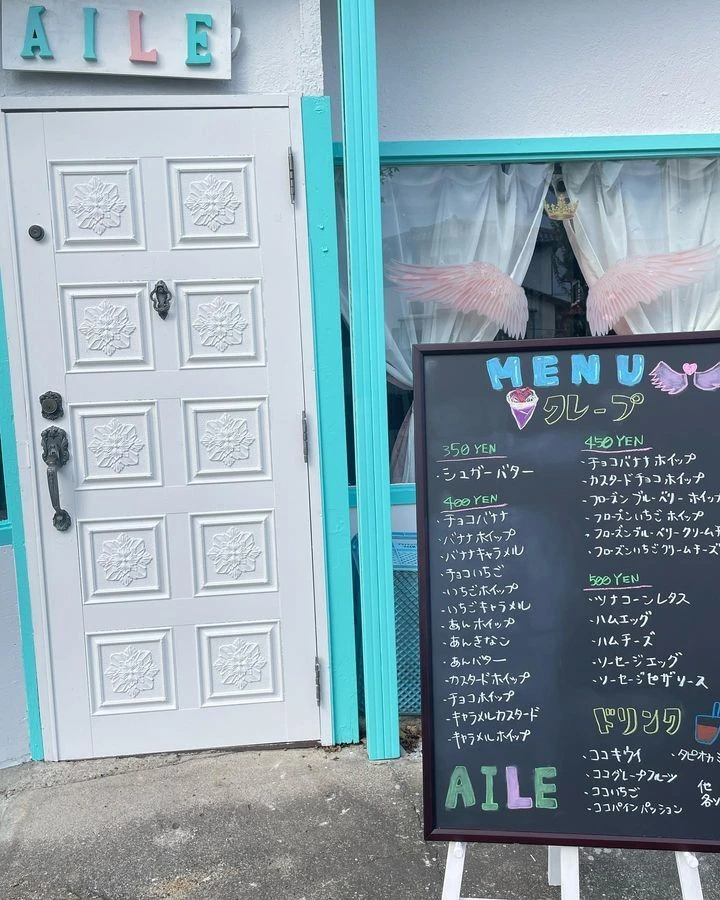 AILE
MENU
クレープ
350 YEN
・シュガーバター
400 YEN
・チョコバナナ
・バナナホイップ
・バナナキャラメル
・チョコいちご
・いちごホイップ
・いちごキャラメル
・あんホイップ
・あんきなこ
・あんバター
・カスタードホイップ
・チョコホイップ
・キャラメルカスタード
・キャラメルホイップ
450 YEN
・チョコバナナホイップ
・カスタードチョコホイップ
・フローズンブルーベリーホイッ
・フローズンいちごホイップ
・フローズンブルーベリークリームチ
・フローズンいちごクリームチーズ
500 YEN
・ツナコーンレタス
・ハムエッグ
・ハムチーズ
・ソーセージエッグ
・ソーセージピザソース
ドリンク
・ココキウイ
・ココグレープフルーツ
・ココいちご
・ココパインパッション
・タピオカ
他
AILE